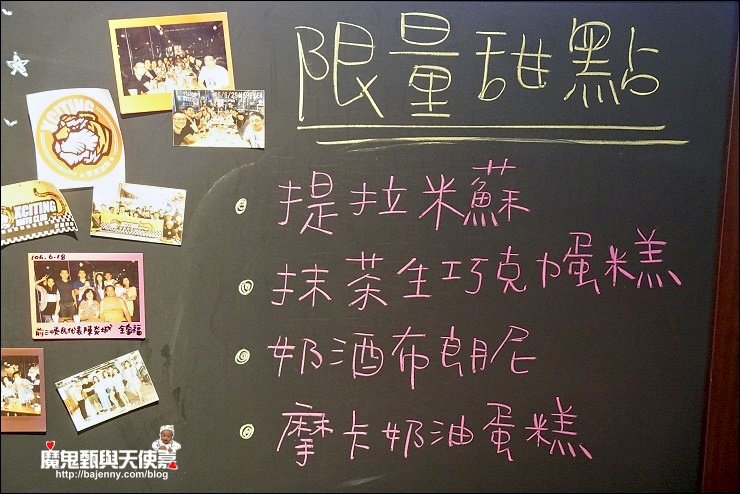 限量甜點
提拉米蘇
抹茶生巧克力蛋糕
奶酒布朗尼
摩卡奶油蛋糕
XCITING
XCITING
106.6.18
魔鬼甄與天使嘉
http://bajenny.com/blog